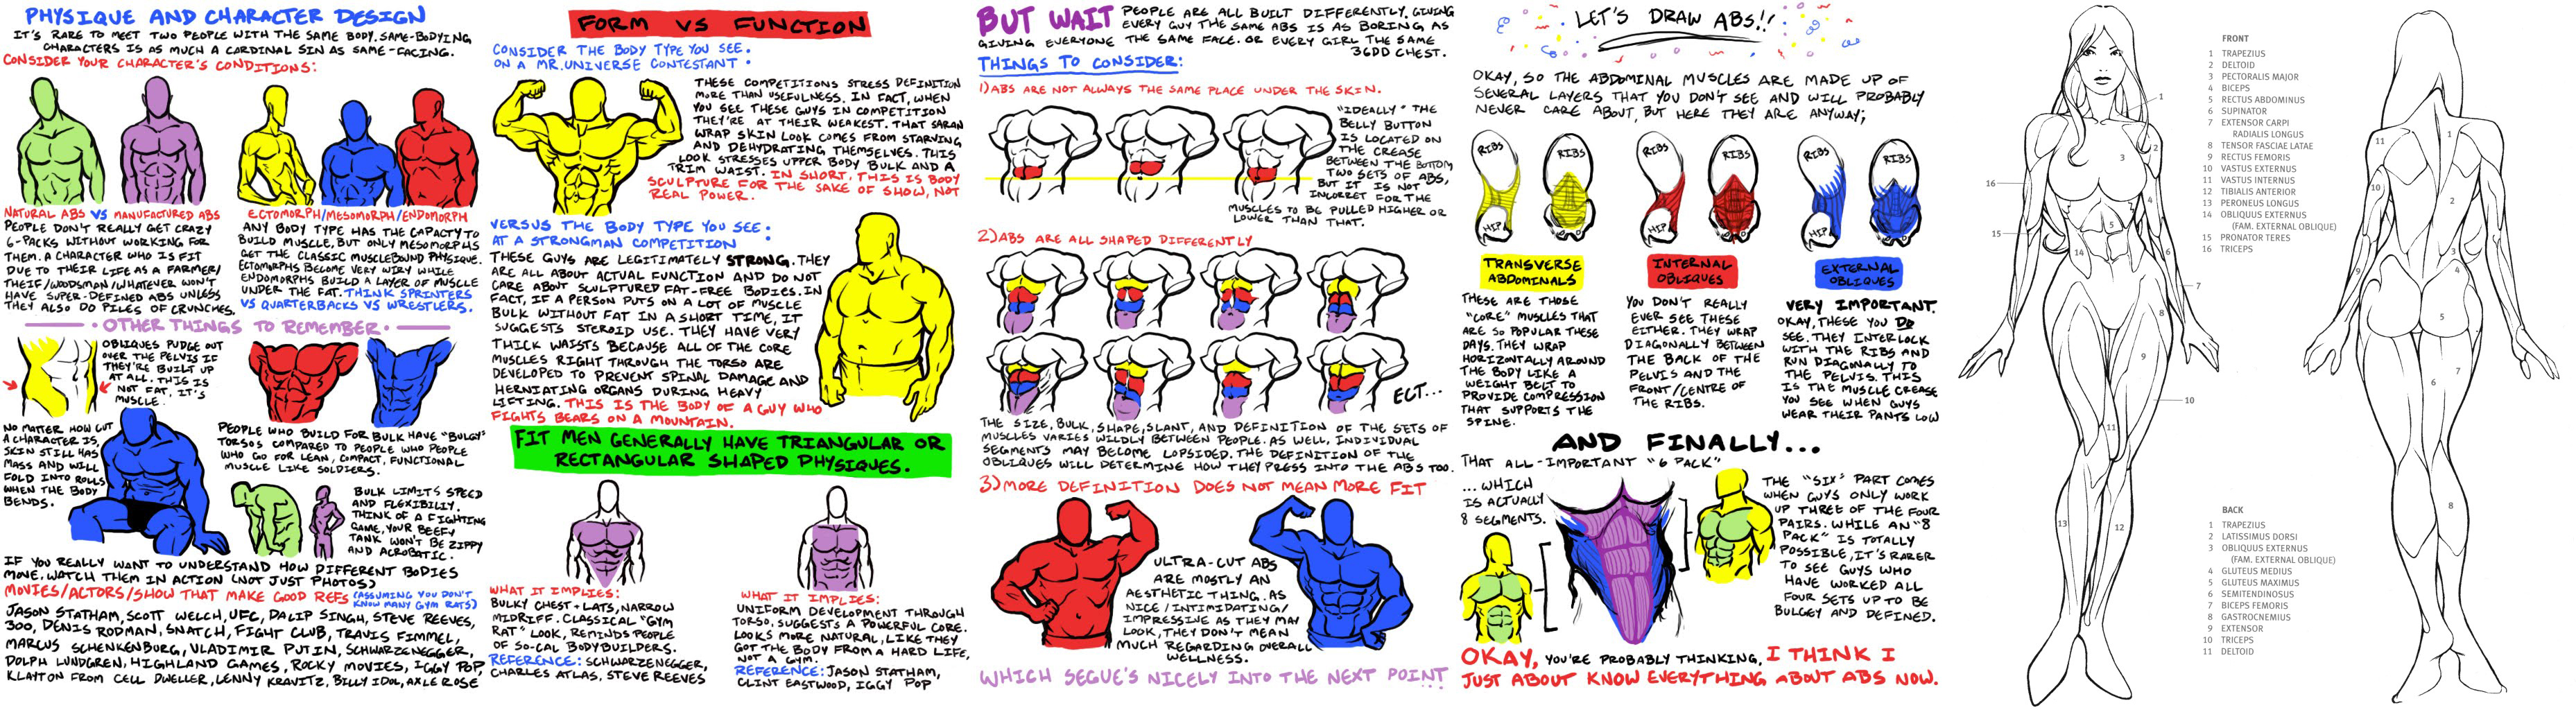 PHYSIQUE AND CHARACTER DESIGN
IT'S RARE TO MEET TWO PEOPLE WITH THE SAME BODY. SAME-BODYING
CHARACTERS IS AS MUCH A CARDINAL SIN AS SAME-FACING.
CONSIDER YOUR CHARACTER'S CONDITIONS:
NATURAL ABS VS MANUFACTURED ABS
PEOPLE DON'T REALLY GET CRAZY
6-PACKS WITHOUT WORKING FOR
THEM. A CHARACTER WHO IS FIT
DUE TO THEIR LIFE AS A FARMER/
THEIF/WOODSMAN/WHATEVER WON'T
HAVE SUPER-DEFINED ABS UNLESS
THEY ALSO DO PILES OF CRUNCHES.
ECTOMORPH/MESOMORPH/ENDOMORPH
ANY BODY TYPE HAS THE CAPACTY TO
BUILD MUSCLE, BUT ONLY MESOMORPHS
GET THE CLASSIC MUSCLEBOUND PHYSIQUE.
ECTOMORPHS BECOME VERY WIRY WHILE
ENDOMORPHS BUILD A LAYER OF MUSCLE
UNDER THE FAT. THINK SPRINTERS
VS QUARTERBACKS VS WRESTLERS.
OTHER THINGS TO REMEMBER
OBLIQUES PUDGE OUT
OVER THE PELVIS IF
THEY'RE BUILT UP
AT ALL. THIS IS
NOT FAT, IT'S
MUSCLE.
NO MATTER HOW CUT
A CHARACTER IS,
SKIN STILL HAS
MASS AND WILL
FOLD INTO ROLLS
WHEN THE BODY
BENDS.
PEOPLE WHO BUILD FOR BULK HAVE "BULGY"
TORSOS COMPARED TO PEOPLE WHO PEOPLE
WHO GO FOR LEAN, COMPACT, FUNCTIONAL
MUSCLE LIKE SOLDIERS.
BULK LIMITS SPEED
AND FLEXIBILIY.
THINK OF A FIGHTING
GAME, YOUR BEEFY
TANK WON'T BE ZIPPY
AND ACROBATIC.
IF YOU REALLY WANT TO UNDERSTAND HOW DIFFERENT BODIES
MOVE, WATCH THEM IN ACTION (NOT JUST PHOTOS)
MOVIES/ACTORS/SHOW THAT MAKE GOOD REFS (ASSUMING YOU DON'T
KNOW MANY GYM RATS)
JASON STATHAM, SCOTT WELCH, UFC, DALIP SINGH, STEVE REEVES,
300, DENIS RODMAN, SNATCH, FIGHT CLUB, TRAVIS FIMMEL,
MARCUS SCHENKENBURG, VLADIMIR PUTIN, SCHWARZENEGGER,
DOLPH LUNDGREN, HIGHLAND GAMES, ROCKY MOVIES, IGGY POP,
KLAYTON FROM CELL DWELLER, LENNY KRAVITZ, BILLY IDOL, AXLE ROSE
FORM VS FUNCTION
CONSIDER THE BODY TYPE YOU SEE:
ON A MR. UNIVERSE CONTESTANT.
THESE COMPETITIONS STRESS DEFINITION
MORE THAN USEFULNESS. IN FACT, WHEN
YOU SEE THESE GUYS IN COMPETITION
THEY'RE AT THEIR WEAKEST. THAT SARAN
WRAP SKIN LOOK COMES FROM STARVING
AND DEHYDRATING THEMSELVES. THIS
LOOK STRESSES UPPER BODY BULK AND A
TRIM WAIST. IN SHORT, THIS IS BODY
SCULPTURE FOR THE SAKE OF SHOW, NOT
REAL POWER.
VERSUS THE BODY TYPE YOU SEE:
AT A STRONGMAN COMPETITION
THESE GUYS ARE LEGITIMATELY STRONG. THEY
ARE ALL ABOUT ACTUAL FUNCTION AND DO NOT
CARE ABOUT SCULPTURED FAT-FREE BODIES. IN
FACT, IF A PERSON PUTS ON A LOT OF MUSCLE
BULK WITHOUT FAT IN A SHORT TIME, IT
SUGGESTS STEROID USE. THEY HAVE VERY
THICK WAISTS BECAUSE ALL OF THE CORE
MUSCLES RIGHT THROUGH THE TORSO ARE
DEVELOPED TO PREVENT SPINAL DAMAGE AND
HERNIATING ORGANS DURING HEAVY
LIFTING. THIS IS THE BODY OF A GUY WHO
FIGHTS BEARS ON A MOUNTAIN.
FIT MEN GENERALLY HAVE TRIANGULAR OR
RECTANGULAR SHAPED PHYSIQUES.
WHAT IT IMPLIES:
BULKY CHEST + LATS, NARROW
MIDRIFF. CLASSICAL "GYM
RAT" LOOK, REMINDS PEOPLE
OF SO-CAL BODYBUILDERS.
REFERENCE: SCHWARZENEGGER,
CHARLES ATLAS, STEVE REEVES
WHAT IT IMPLIES:
UNIFORM DEVELOPMENT THROUGH
TORSO. SUGGESTS A POWERFUL CORE.
LOOKS MORE NATURAL, LIKE THEY
GOT THE BODY FROM A HARD LIFE,
NOT A GYM.
REFERENCE: JASON STATHAM,
CLINT EASTWOOD, IGGY POP
BUT WAIT PEOPLE ARE ALL BUILT DIFFERENTLY. GIVING
EVERY GUY THE SAME ABS IS AS BORING AS
GIVING EVERYONE THE SAME FACE. OR EVERY GIRL THE SAME
36DD CHEST.
THINGS TO CONSIDER:
1) ABS ARE NOT ALWAYS THE SAME PLACE UNDER THE SKIN.
"IDEALLY" THE
BELLY BUTTON
IS LOCATED ON
THE CREASE
BETWEEN THE BOTTOM
TWO SETS OF ABS,
BUT IT IS NOT
INCORRET FOR THE
MUSCLES TO BE PULLED HIGHER OR
LOWER THAN THAT.
2) ABS ARE ALL SHAPED DIFFERENTLY
ECT...
THE SIZE, BULK, SHAPE, SLANT, AND DEFINITION OF THE SETS OF
MUSCLES VARIES WILDLY BETWEEN PEOPLE. AS WELL, INDIVIDUAL
SEGMENTS MAY BECOME LOPSIDED. THE DEFINITION OF THE
OBLIQUES WILL DETERMINE HOW THEY PRESS INTO THE ABS TOO.
3) MORE DEFINITION DOES NOT MEAN MORE FIT
ULTRA-CUT ABS
ARE MOSTLY AN
AESTHETIC THING. AS
NICE/INTIMIDATING/
IMPRESSIVE AS THEY MAY
LOOK, THEY DON'T MEAN
MUCH REGARDING OVERALL
WELLNESS.
WHICH SEGUE'S NICELY INTO THE NEXT POINT
LET'S DRAW ABS!!
OKAY, SO THE ABDOMINAL MUSCLES ARE MADE UP OF
SEVERAL LAYERS THAT YOU DON'T SEE AND WILL PROBABLY
NEVER CARE ABOUT, BUT HERE THEY ARE ANYWAY;
RIBS RIBS RIBS RIBS RIBS RIBS
HIP HIP HIP
TRANSVERSE
ABDOMINALS
THESE ARE THOSE
"CORE" MUSCLES THAT
ARE SO POPULAR THESE
DAYS. THEY WRAP
HORIZONTALLY AROUND
THE BODY LIKE A
WEIGHT BELT TO
PROVIDE COMPRESSION
THAT SUPPORTS THE
SPINE.
INTERNAL
OBLIQUES
YOU DON'T REALLY
EVER SEE THESE
EITHER. THEY WRAP
DIAGONALLY BETWEEN
THE BACK OF THE
PELVIS AND THE
FRONT/CENTRE OF
THE RIBS.
EXTERNAL
OBLIQUES
VERY IMPORTANT.
OKAY, THESE YOU DO
SEE. THEY INTERLOCK
WITH THE RIBS AND
RUN DIAGONALLY TO
THE PELVIS. THIS
IS THE MUSCLE CREASE
YOU SEE WHEN GUYS
WEAR THEIR PANTS LOW
AND FINALLY...
THAT ALL-IMPORTANT "6 PACK"
...WHICH
IS ACTUALLY
8 SEGMENTS.
THE "SIX" PART COMES
WHEN GUYS ONLY WORK
UP THREE OF THE FOUR
PAIRS. WHILE AN "8
PACK" IS TOTALLY
POSSIBLE, IT'S RARER
TO SEE GUYS WHO
HAVE WORKED ALL
FOUR SETS UP TO BE
BULGEY AND DEFINED.
OKAY, YOU'RE PROBABLY THINKING, I THINK I
JUST ABOUT KNOW EVERYTHING ABOUT ABS NOW.
1
2
3
16
4
5
15
14
6
7
8
9
10
11
13
12
FRONT
1 TRAPEZIUS
2 DELTOID
3 PECTORALIS MAJOR
4 BICEPS
5 RECTUS ABDOMINUS
6 SUPINATOR
7 EXTENSOR CARPI
RADIALIS LONGUS
8 TENSOR FASCIAE LATAE
9 RECTUS FEMORIS
10 VASTUS EXTERNUS
11 VASTUS INTERNUS
12 TIBIALIS ANTERIOR
13 PERONEUS LONGUS
14 OBLIQUUS EXTERNUS
(FAM. EXTERNAL OBLIQUE)
15 PRONATOR TERES
16 TRICEPS
BACK
1 TRAPEZIUS
2 LATISSIMUS DORSI
3 OBLIQUUS EXTERNUS
(FAM. EXTERNAL OBLIQUE)
4 GLUTEUS MEDIUS
5 GLUTEUS MAXIMUS
6 SEMITENDINOSUS
7 BICEPS FEMORIS
8 GASTROCNEMIUS
9 EXTENSOR
10 TRICEPS
11 DELTOID
11
1
10
2
3
9
4
5
6
7
8